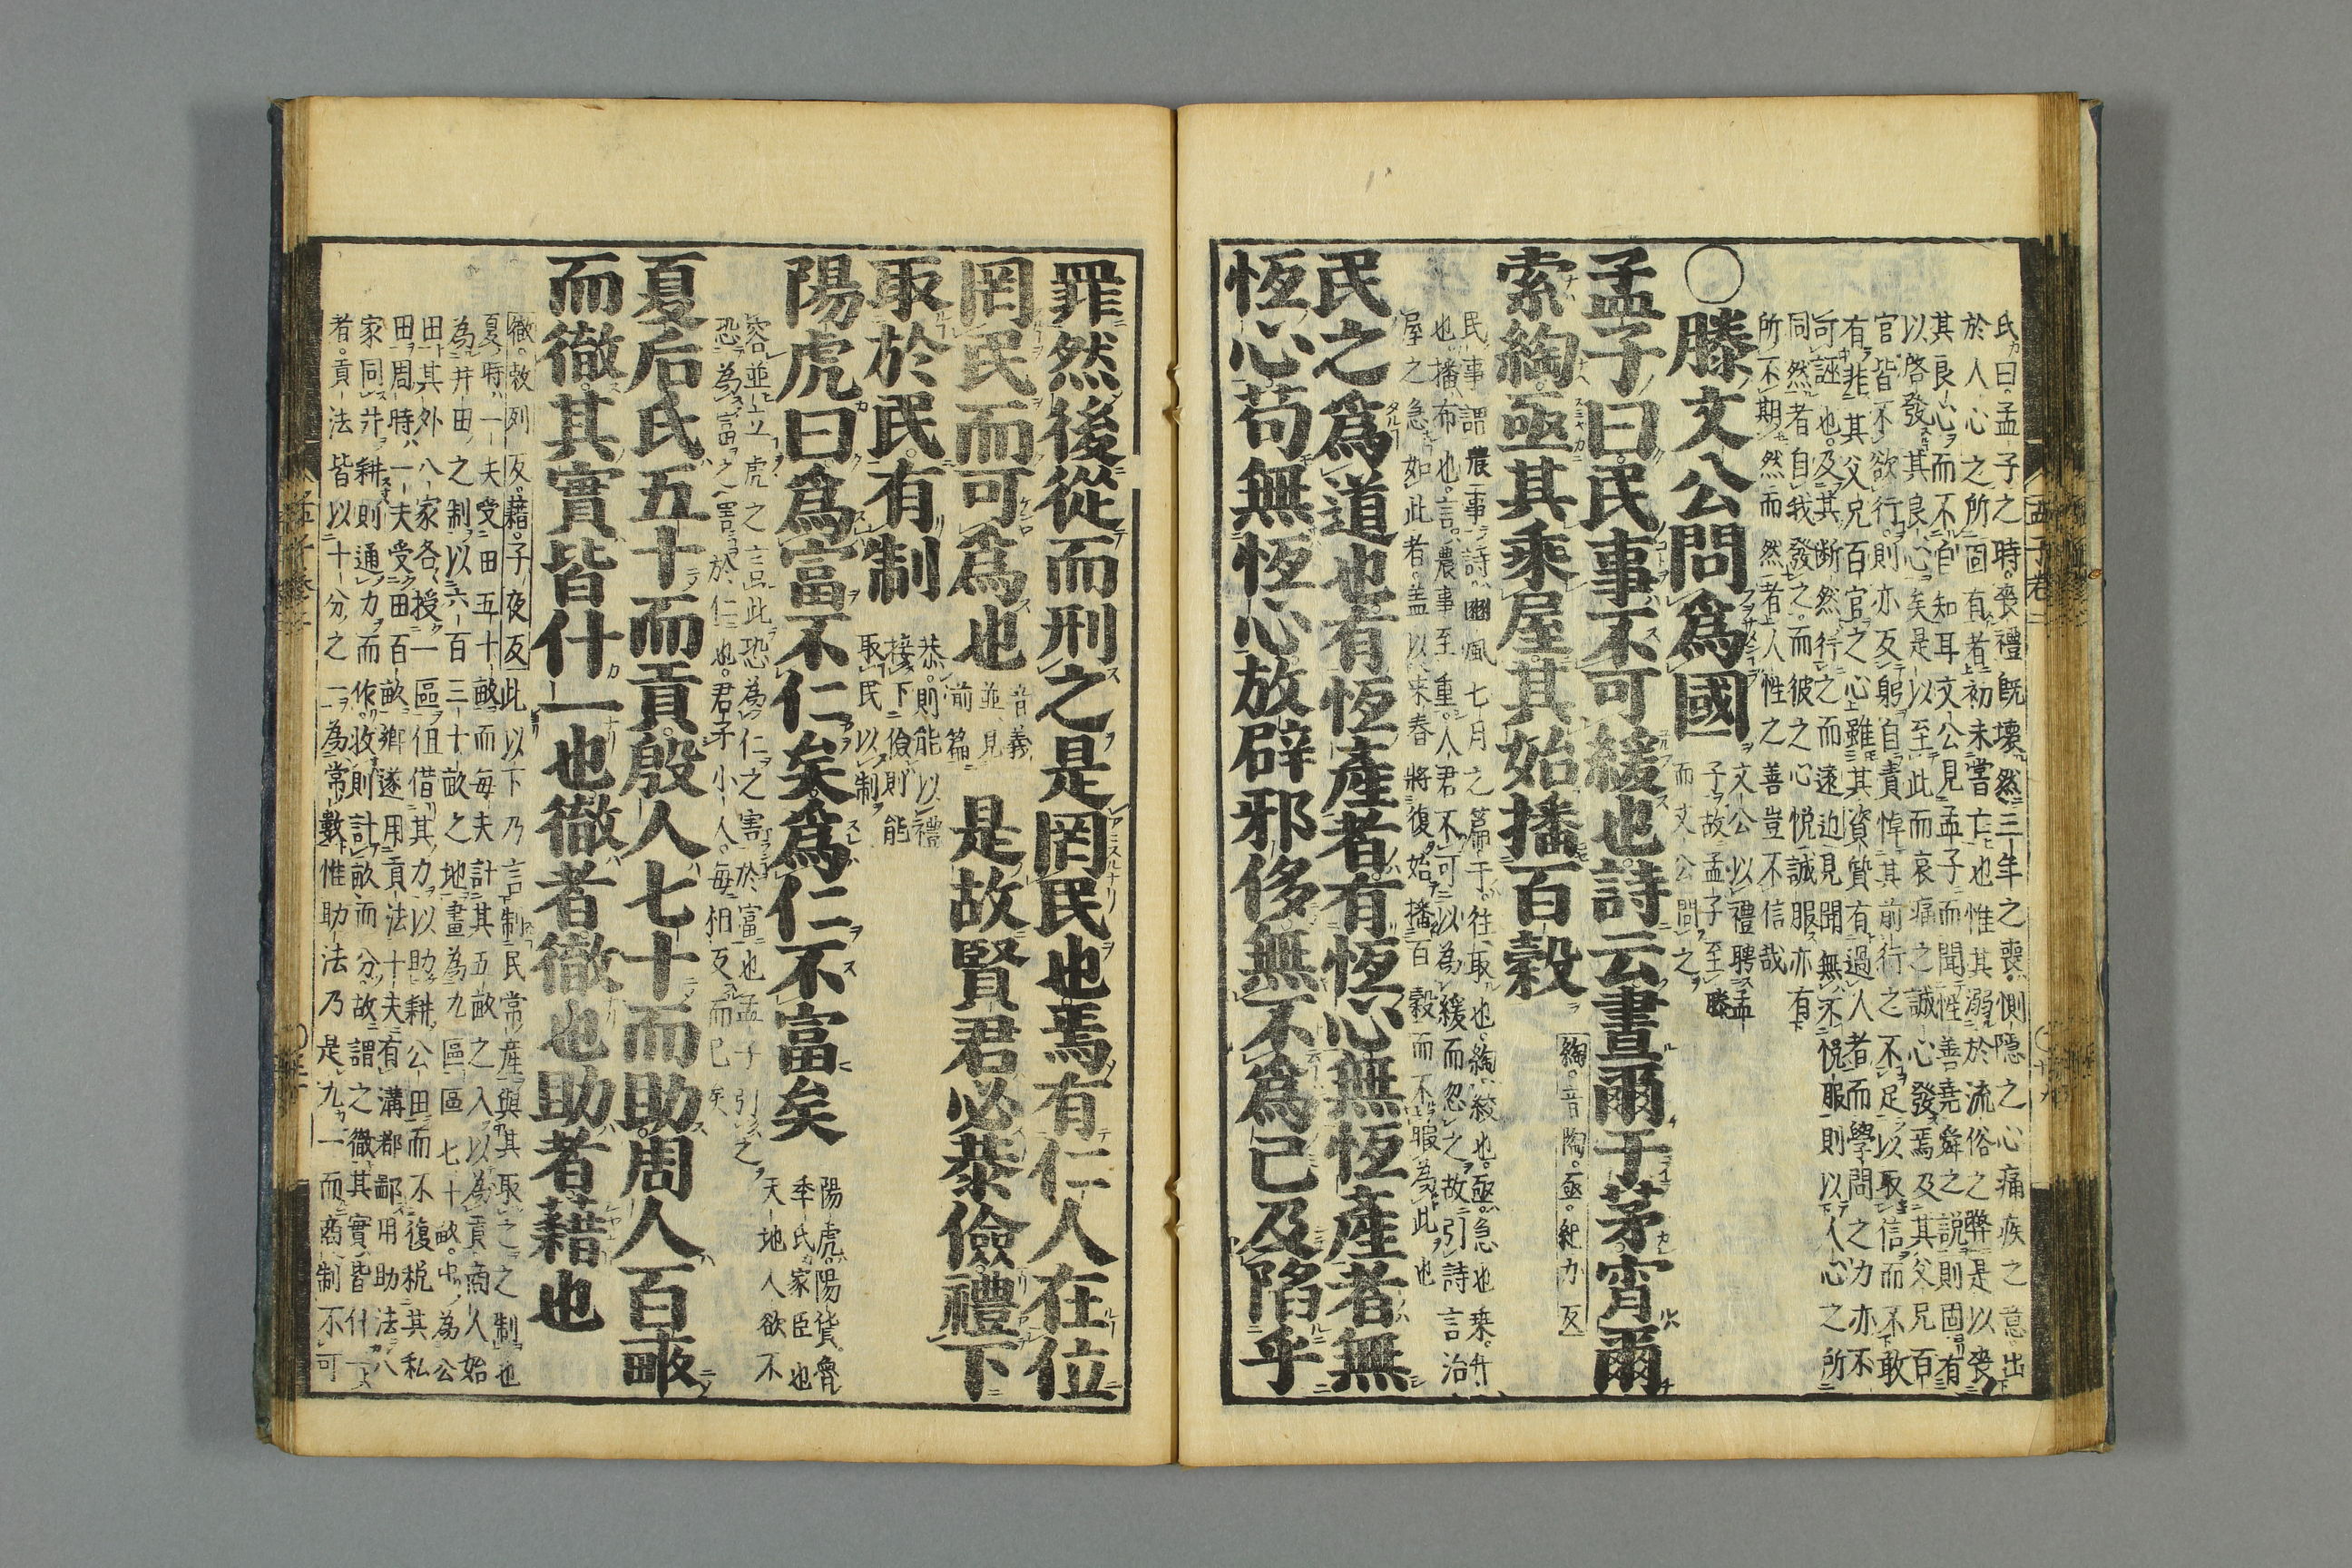 氏曰。孟子之時。喪禮既壞。然三年之喪。惻隱之心痛疾之意出
於人心之所固有者。初未嘗亡也惟其溺於流俗之弊是以喪
其良心而不自知耳文公見孟子而聞性善堯舜之說則固有
以啓發其良心矣是以至此而哀痛之誠心發焉及其父兄百
官皆不欲行。則亦反躬自責悼其前行之不足以取信而不敢
有非其父兄百官之心雖其資質有過人者而學問之力亦不
可誣也。及其斷然行之而遠迩見聞無不悅服則以人心之所
同然者自我發之。而彼之心悅誠服亦有
所不期然而然者人性之善豈不信哉
○滕文公問爲國
文公以禮聘孟
子故孟子至滕
而文公問之
孟子曰民事不可緩也詩云晝爾于茅宵爾
索綯亟其乘屋其始播百穀
綯。音陶。亟。紀力反
民事謂農事詩豳風七月之篇于。往取也。綯絞也。亟。急也乘。升
也播布也。言農事至重。人君不可以為緩而忽之故引詩言治
屋之急如此者。盖以来春將復始播百穀而不暇為此也
民之爲道也有恆產者有恆心無恆產者無
恆心苟無恆心放辟邪侈無不爲已及陷乎
孟子卷二
罪然後從而刑之是罔民也焉有仁人在位
罔民而可爲也
音義
並見
前篇
是故賢君必恭儉禮下
取於民有制
恭。則能以禮
接下儉則能
取民以制
陽虎曰爲富不仁矣爲仁不富矣
陽虎陽貨魯
季氏家臣也
天地人欲不
容並立虎之言此恐為仁之害於富也孟子引之
恐為富之害於仁也。君子小人。每相反而已矣
夏后氏五十而貢殷人七十而助周人百畝
而徹其實皆什一也徹者徹也助者藉也
徹。敕列反。藉。子夜反
此以下乃言制民常產與其取之之制也
夏時一夫受田五十畝而每夫計其五畝之入以為貢商人始
為井田之制以六百三十畝之地畫為九區區七十畝。中為公
田其外八家各授一區但借其力以助耕公田而不復稅其私
田周時一夫受田百畝鄉遂用貢法十夫有溝都鄙用助法八
家同井耕則通力而作。收則計畝而分。故謂之徹其實皆什一
者。貢法皆以十分之一為常數惟助法乃是九一而商制不可